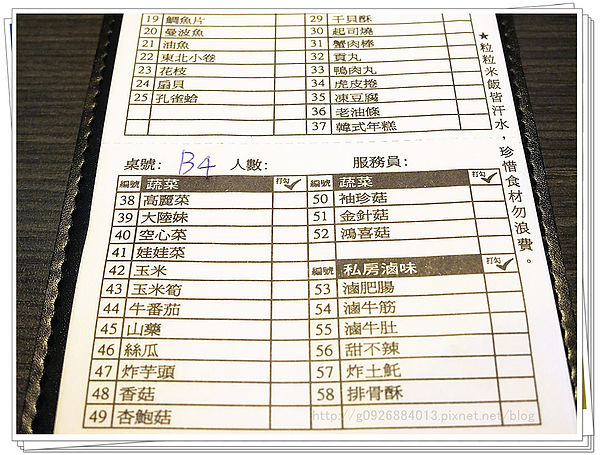 19 鯛魚片
20 曼波魚
21 油魚
22 東北小卷
23 花枝
24 扇貝
25 孔雀蛤
29 干貝酥
30 起司燒
31 蟹肉棒
32 貢丸
33 鴨肉丸
34 虎皮捲
35 凍豆腐
36 老油條
37 韓式年糕
★粒粒米飯皆汗水，珍惜食材勿浪費。
桌號: B4 人數: 服務員:
編號 蔬菜 打勾
38 高麗菜
39 大陸妹
40 空心菜
41 娃娃菜
42 玉米
43 玉米筍
44 牛番茄
45 山藥
46 絲瓜
47 炸芋頭
48 香菇
49 杏鮑菇
編號 蔬菜 打勾
50 袖珍菇
51 金針菇
52 鴻喜菇
編號 私房滷味 打勾
53 滷肥腸
54 滷牛筋
55 滷牛肚
56 甜不辣
57 炸土魠
58 排骨酥
http://g0926884013.pixnet.net/blog